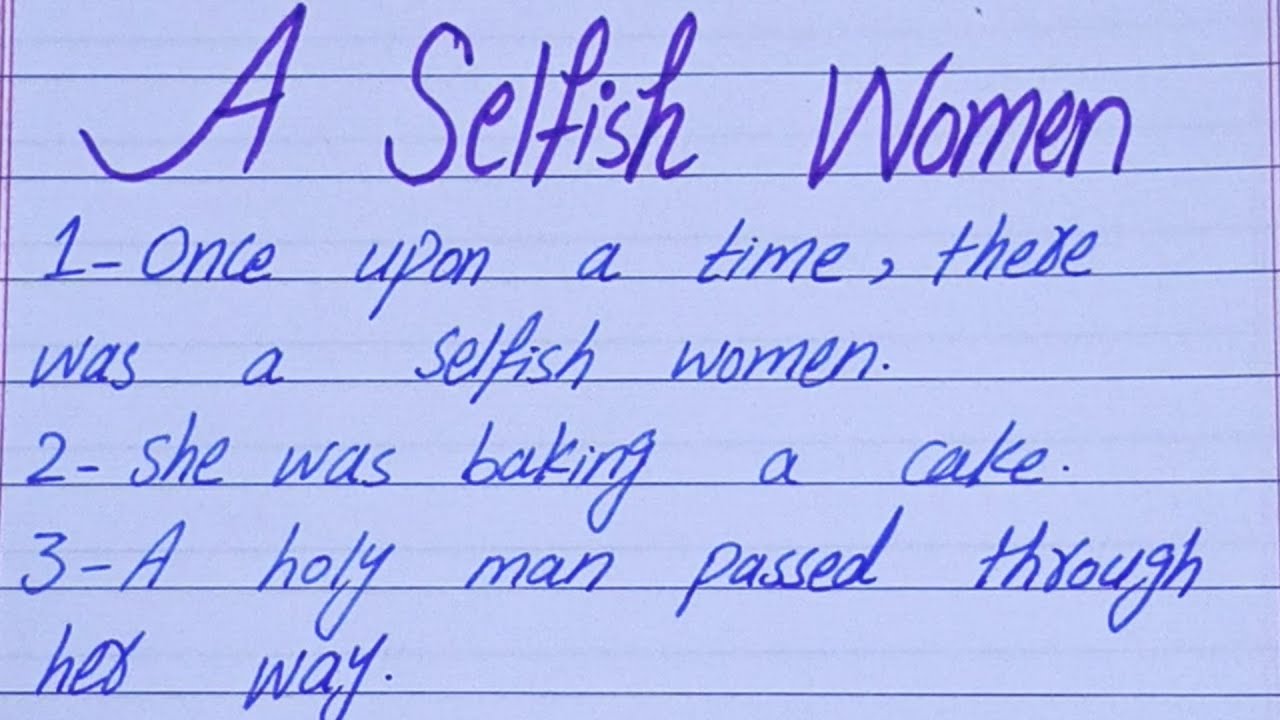 A Selfish Women
1- Once upon a time, there
was a selfish women.
2- She was baking a cake.
3- A holy man passed through
her way.